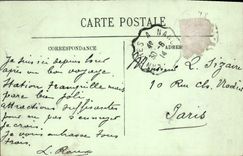 CARTE POSTALE
CORRESPONDANCE
ADRESSE
Je suis ici depuis lundi
après un bon voyage
Station tranquille mais
parc bien joli
attractions suffisantes
pour ne pas s'ennuyer
je crois.
Je vous embrasse tous
trois.
Monsieur L. Lizaire
10 Rue Clos
Paris